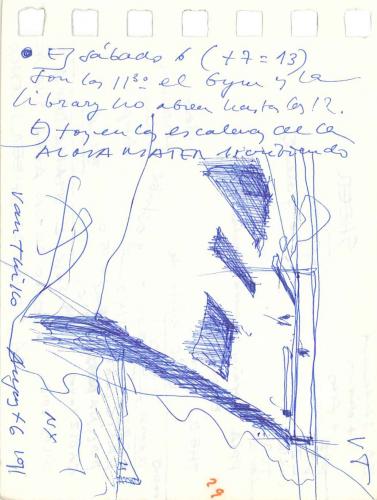 Es sábado 6 (+7=13)
Son las 11:30 el Gym y la
library no abren hasta las 12.
Estoy en las escaleras de la
ALMA MATER escribiendo
Van Thilo August 6 '91
NY
VT
29